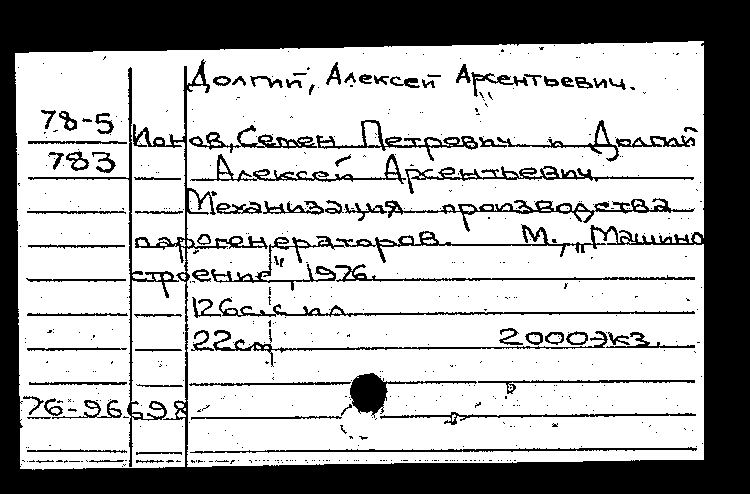 Долгий, Алексей Арсентьевич.
78-5
Ионов, Семен Петрович и Долгий
783
Алексей Арсентьевич.
Механизация производства
парогенераторов. М., „Машино
строение", 1976.
126с. с ил.
22см. 2000экз.
76-96698